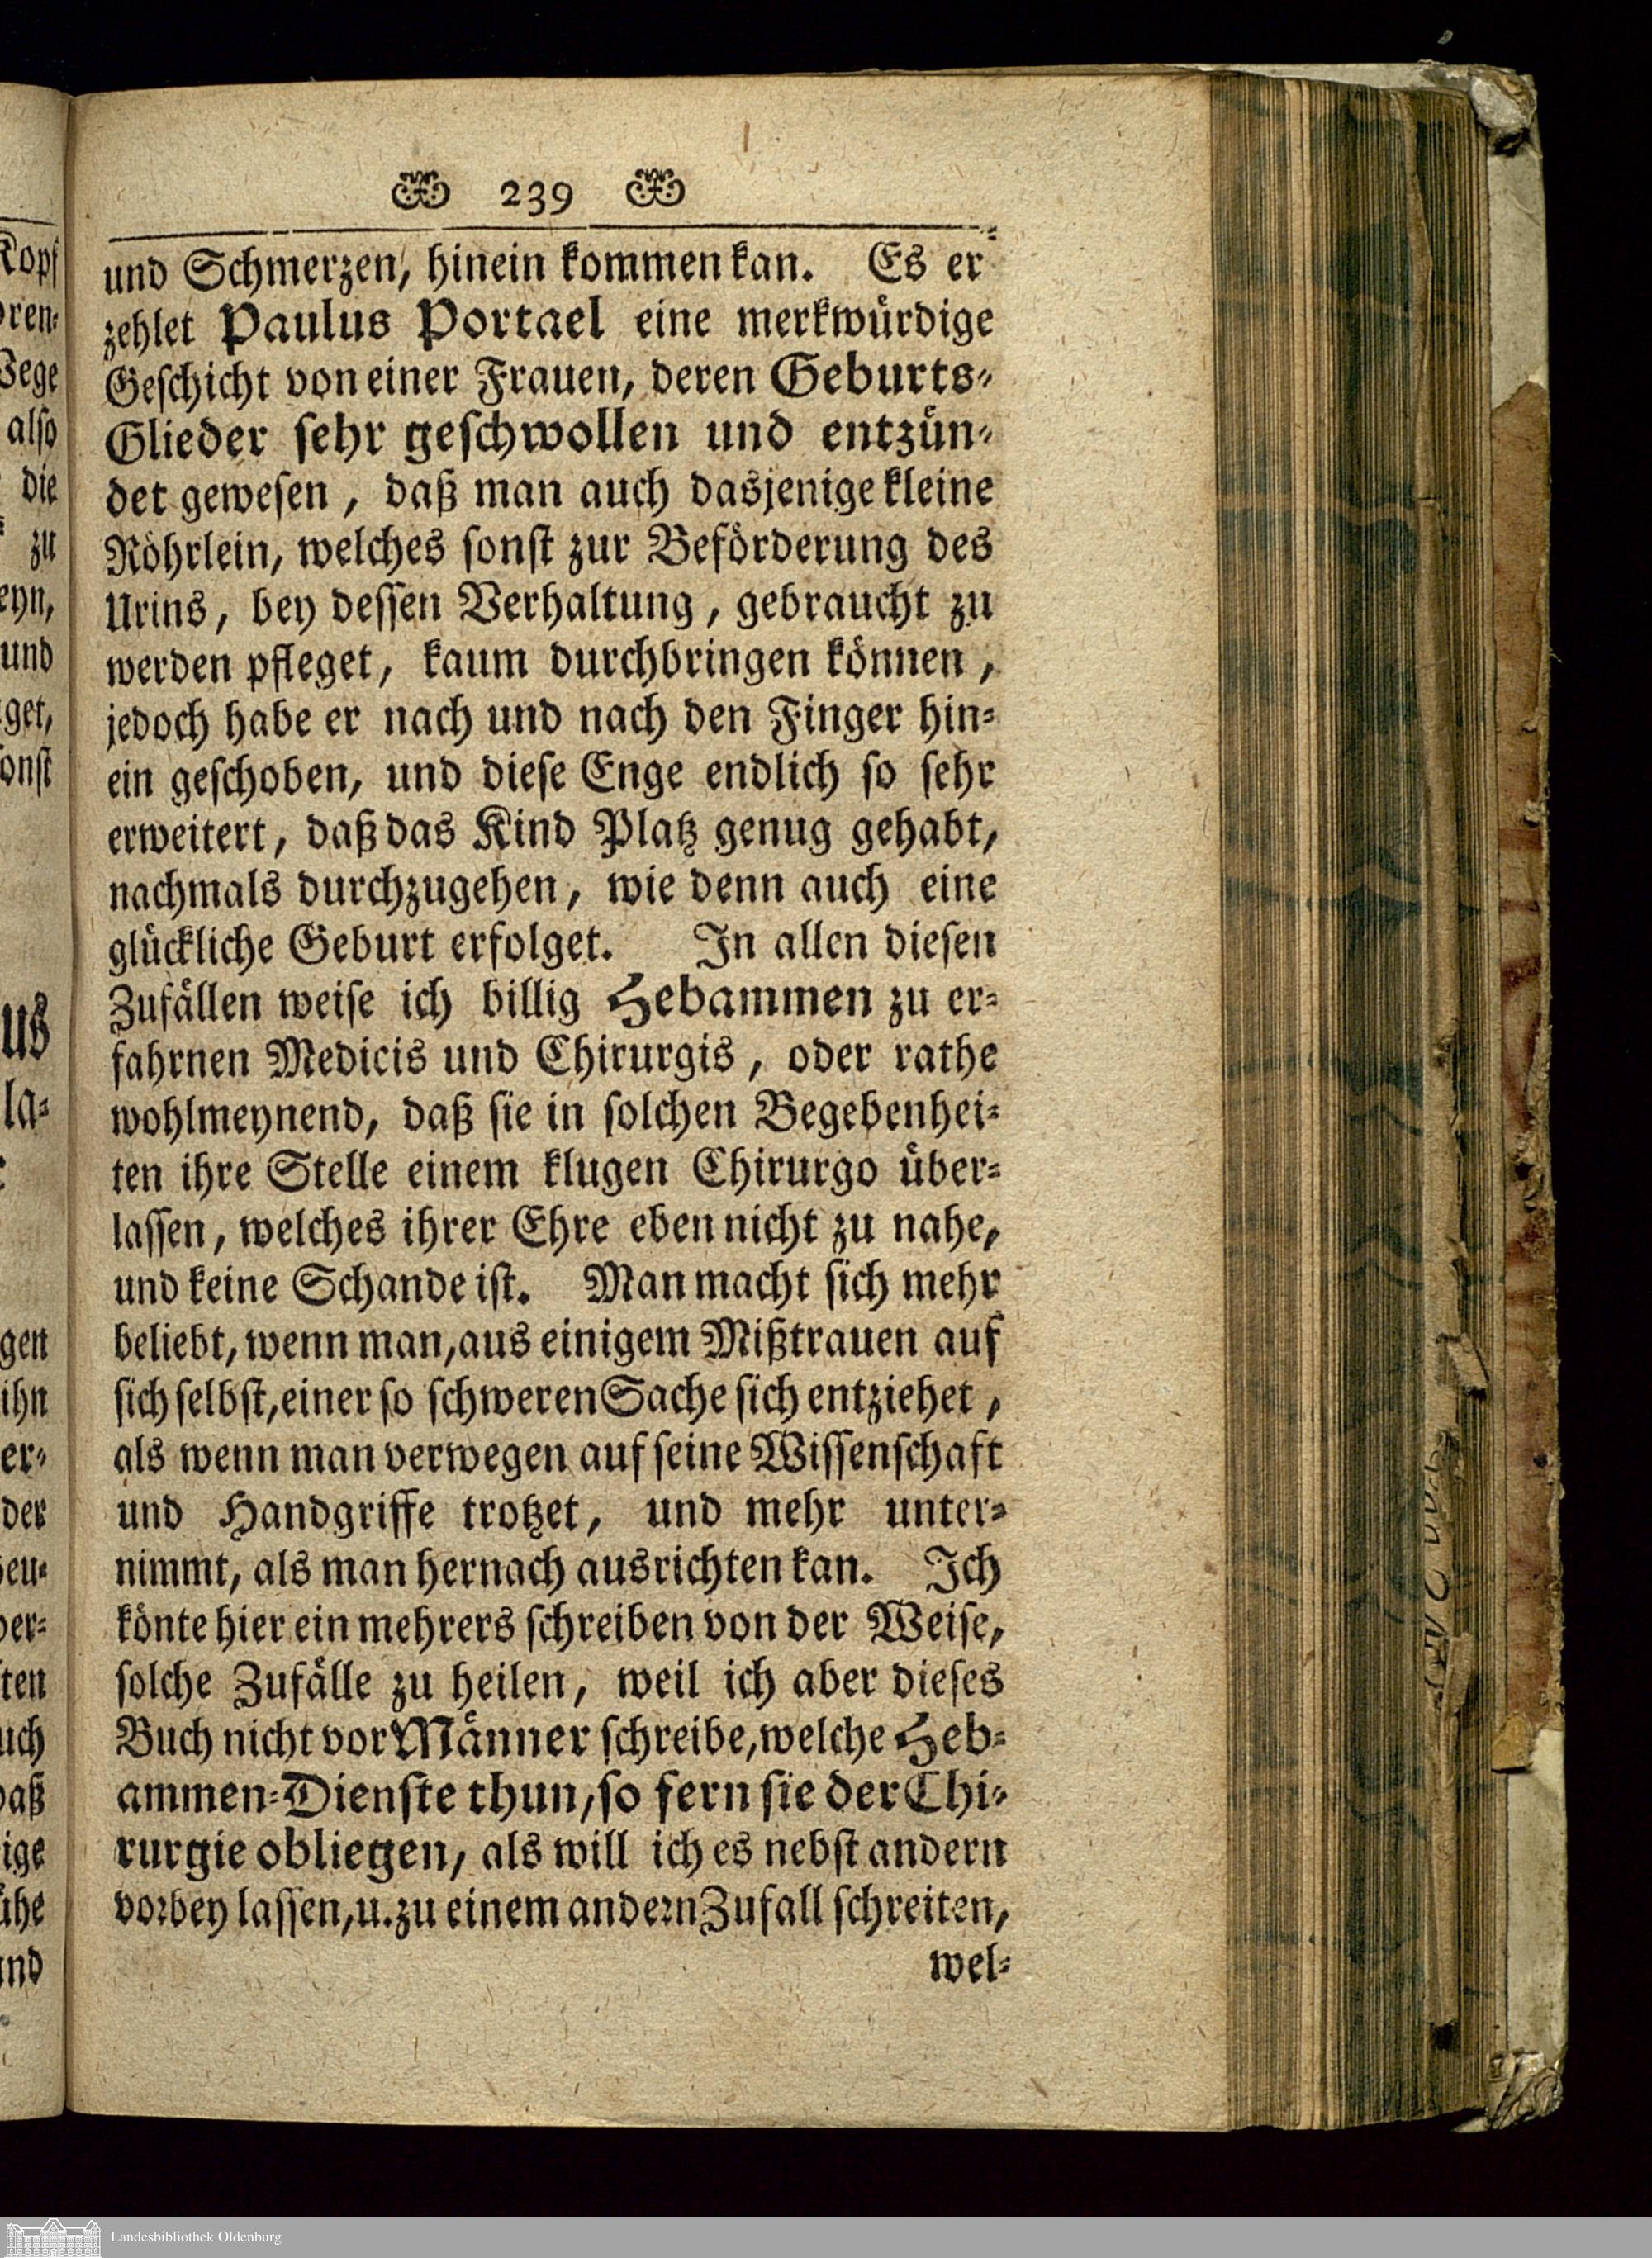 239
und Schmerzen, hinein kommen kan. Es er
zehlet Paulus Portael eine merkwürdige
Geschicht von einer Frauen, deren Geburts-
Glieder sehr geschwollen und entzün-
det gewesen, daß man auch dasjenige kleine
Röhrlein, welches sonst zur Beförderung des
Urins, bey dessen Verhaltung, gebraucht zu
werden pfleget, kaum durchbringen können,
jedoch habe er nach und nach den Finger hin-
ein geschoben, und diese Enge endlich so sehr
erweitert, daß das Kind Platz genug gehabt,
nachmals durchzugehen, wie denn auch eine
glückliche Geburt erfolget. In allen diesen
Zufällen weise ich billig Hebammen zu er-
fahrnen Medicis und Chirurgis, oder rathe
wohlmeynend, daß sie in solchen Begebenhei-
ten ihre Stelle einem klugen Chirurgo über-
lassen, welches ihrer Ehre eben nicht zu nahe,
und keine Schande ist. Man macht sich mehr
beliebt, wenn man, aus einigem Mißtrauen auf
sich selbst, einer so schweren Sache sich entziehet,
als wenn man verwegen auf seine Wissenschaft
und Handgriffe trotzet, und mehr unter-
nimmt, als man hernach ausrichten kan. Ich
könte hier ein mehrers schreiben von der Weise,
solche Zufälle zu heilen, weil ich aber dieses
Buch nicht vor Männer schreibe, welche Heb-
ammen-Dienste thun, so fern sie der Chi-
rurgie obliegen, als will ich es nebst andern
vorbey lassen, u. zu einem andern Zufall schreiten,
wel-
Landesbibliothek Oldenburg